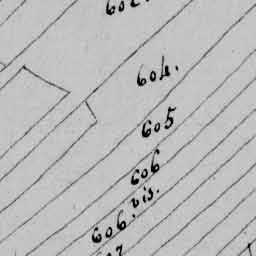 602.
604.
605
606
606.bis.